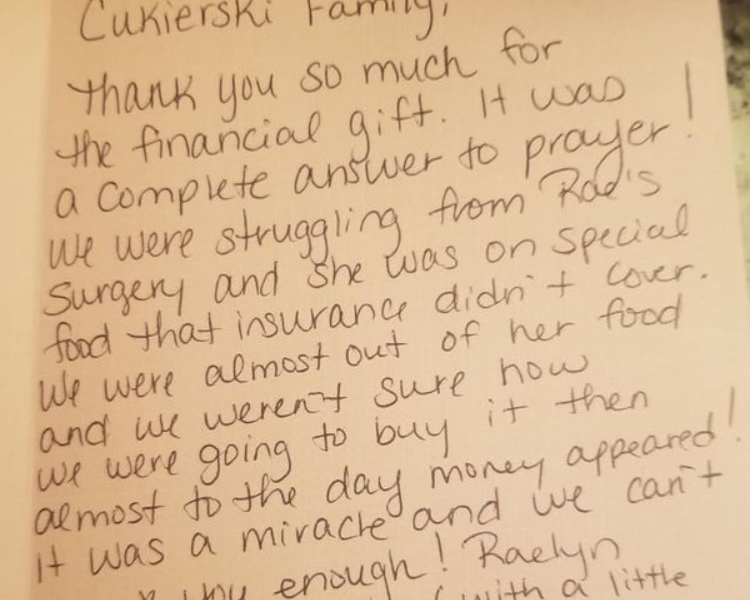 Cukierski Family,
thank you so much for
the financial gift. It was
a complete answer to prayer!
We were struggling from Rae's
surgery and she was on special
food that insurance didn't cover.
We were almost out of her food
and we weren't sure how
we were going to buy it then
almost to the day money appeared!
It was a miracle and we can't
you enough! Raelyn
with a little